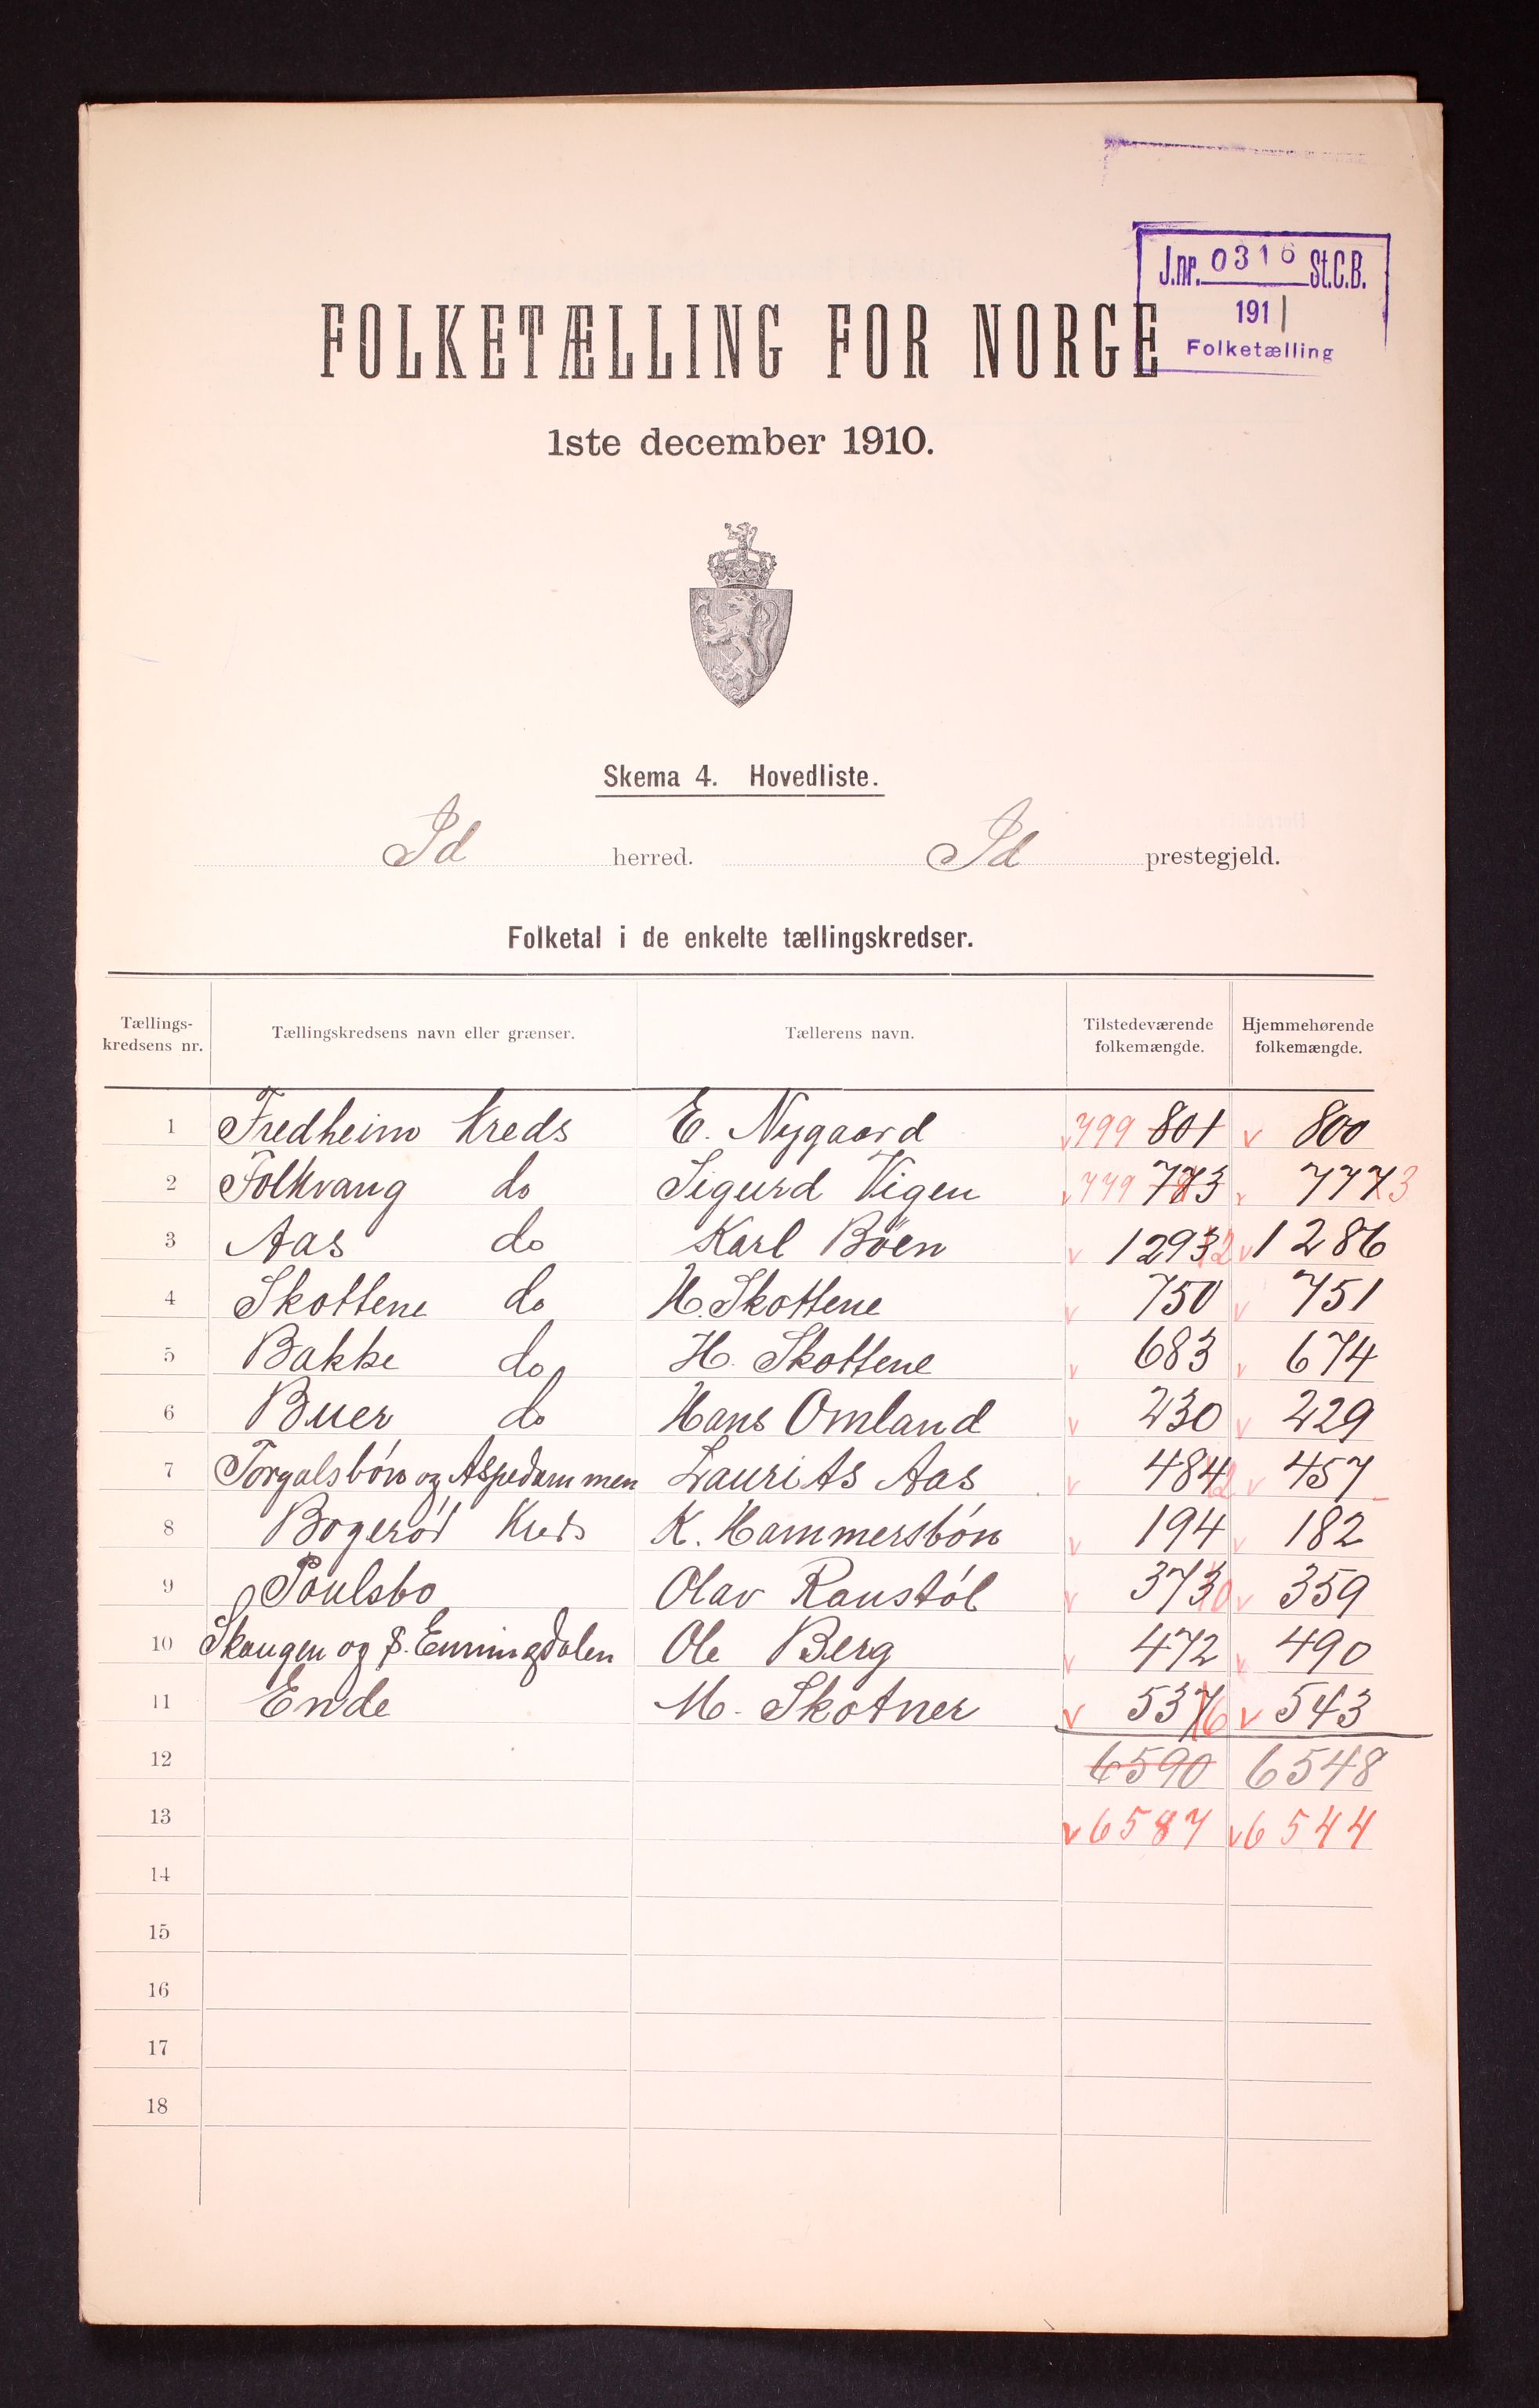 J.nr. 0316 St.C.B.
1911
Folketælling
FOLKETÆLLING FOR NORGE
1ste december 1910.
Skema 4. Hovedliste.
Id herred. Id prestegjeld.
Folketal i de enkelte tællingskredser.
Tællings-kredsens nr. Tællingskredsens navn eller grænser. Tællerens navn. Tilstedeværende folkemængde. Hjemmehørende folkemængde.
1 Fredheim Kreds E. Nygaard v 799 801 v 800
2 Folkvang do Sigurd Vigen v 779 783 v 777 3
3 Aas do Karl Böen v 1293 2 v 1286
4 Skottene do H. Skottene v 750 v 751
5 Bakke do H. Skottene v 683 v 674
6 Buer do Hans Omland v 230 v 229
7 Torgalsbön og Aspedammen Laurits Aas v 484 2 v 457
8 Bogeröd Kreds K. Hammersbön v 194 v 182
9 Poulsbo Olav Raustöl v 373 0 v 359
10 Skaugen og Enningdalen Ole Berg v 472 v 490
11 Ende M. Skotner v 537 6 v 543
12 6590 6548
13 v 6587 v 6544
14
15
16
17
18